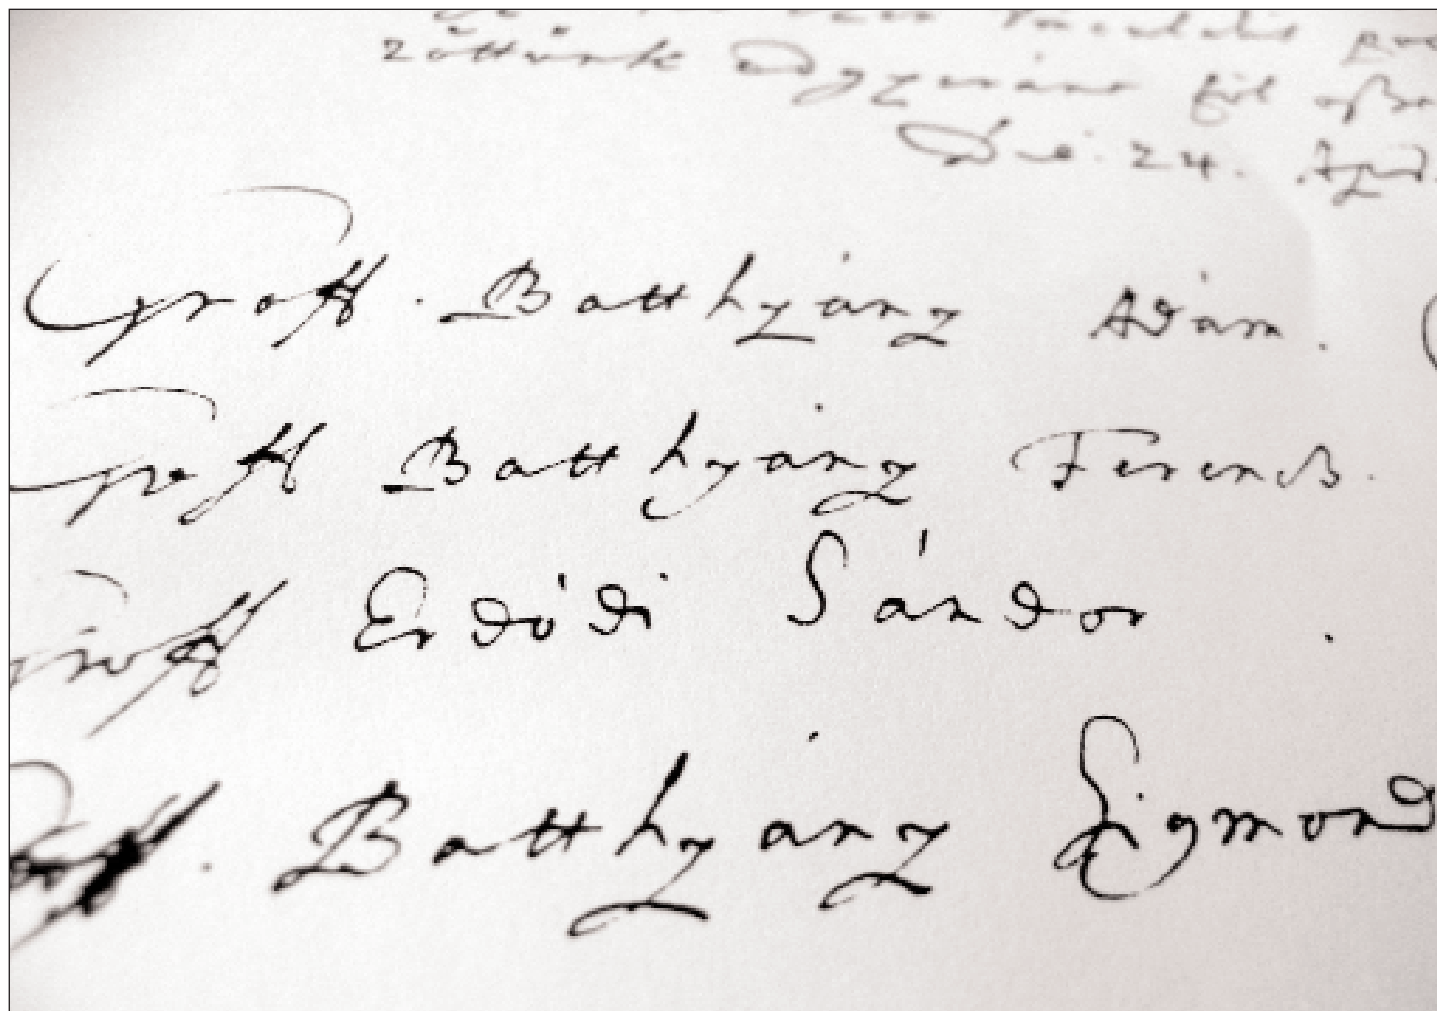 zöttünk
Die. 24. April.
Groff. Batthÿány Ádám.
Groff Batthyány Ferencz.
Groff Erdődi Sándor
Groff. Batthÿány Sigmond